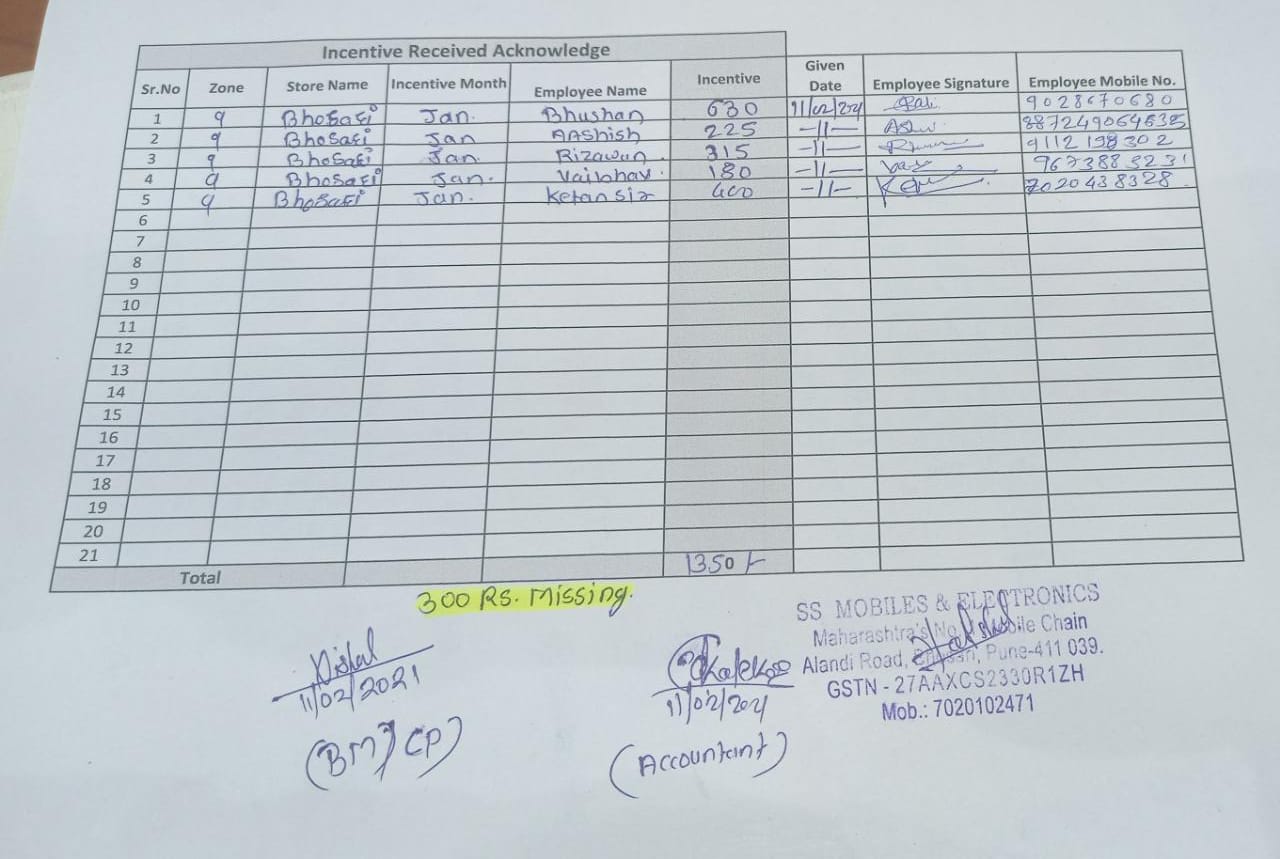 Incentive Received Acknowledge
Sr.No Zone Store Name Incentive Month Employee Name Incentive Given Date Employee Signature Employee Mobile No.
1 9 Bhosari Jan. Bhushan 630 11/02/2021 9028670680
2 9 Bhosari Jan Aashish 225 -11- 887249064635
3 9 Bhosari Jan. Rizawan. 315 -11- 9112198302
4 9 Bhosari Jan. Vaibhav. 180 -11- 9673883231
5 9 Bhosari Jan. Ketan sir 400 -11- 7020438328
6
7
8
9
10
11
12
13
14
15
16
17
18
19
20
21
Total 1350/-
300 Rs. Missing.
SS MOBILES & ELECTRONICS
Maharashtra's No. Mobile Chain
Alandi Road, Bhosari, Pune-411 039.
GSTN - 27AAXCS2330R1ZH
Mob.: 7020102471
11/02/2021
(BM) CP)
11/02/2021
(Accountant)